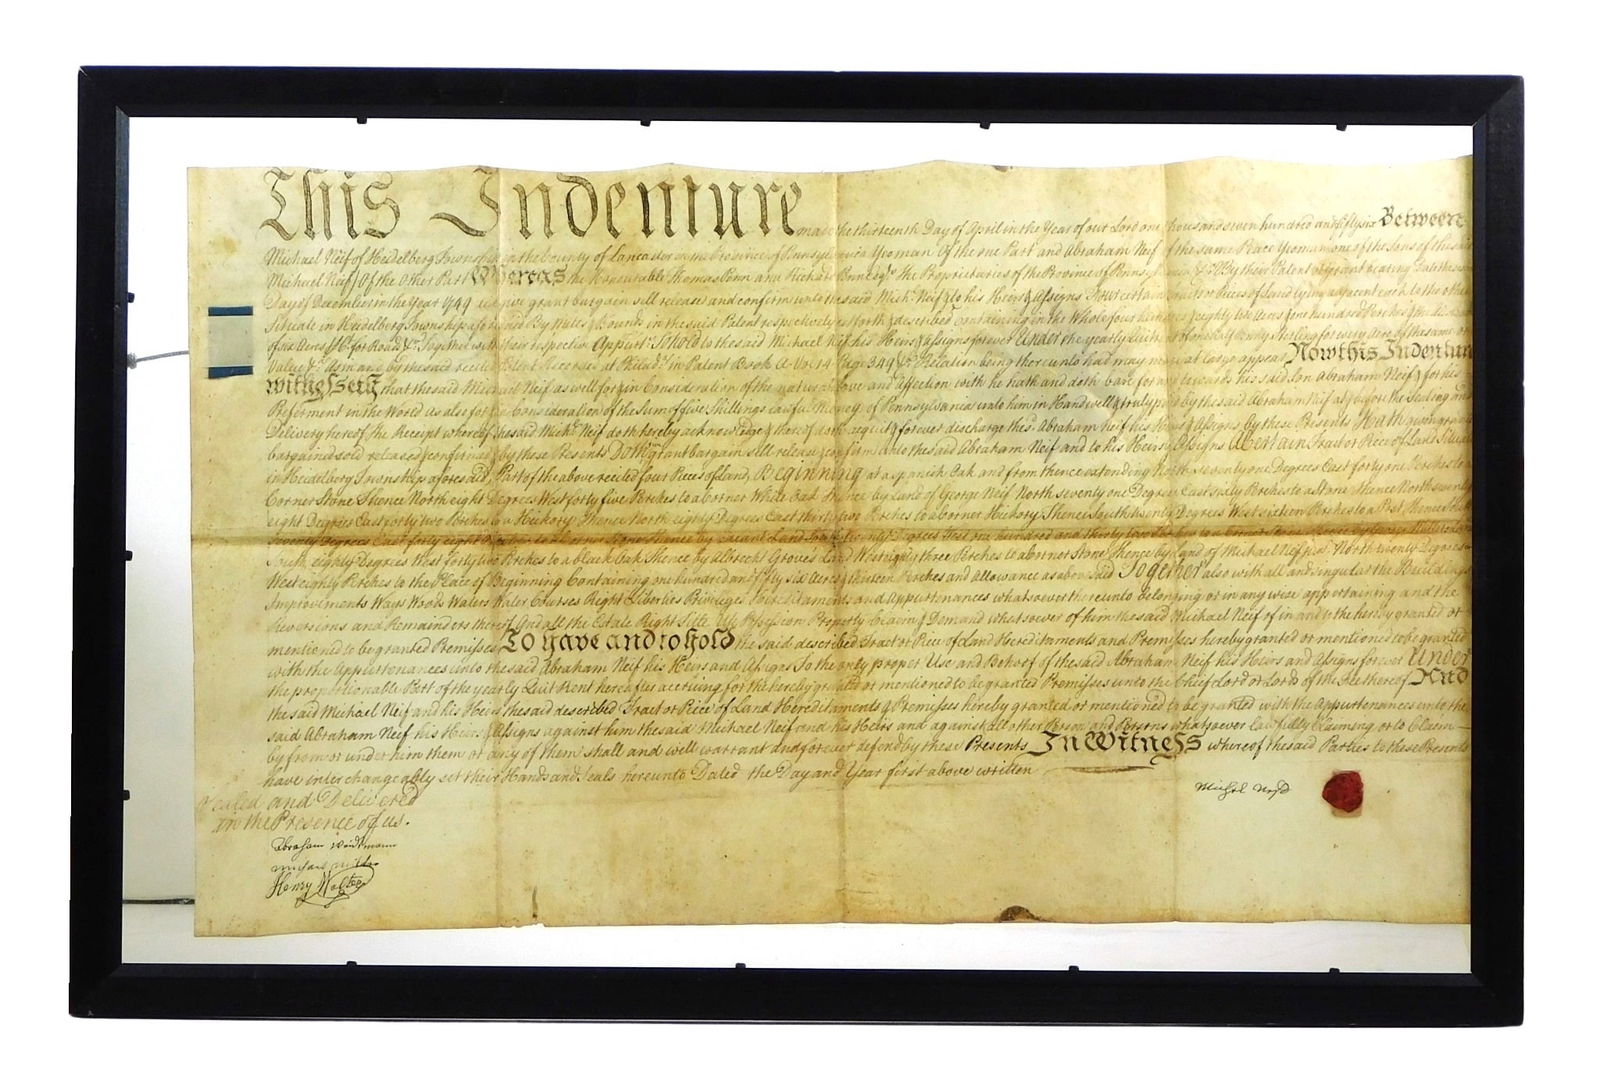 This Indenture made the thirteenth Day of April in the Year of our Lord one thousand seven hundred and fifty six Between
Michael Neif of Heidelberg Township in the County of Lancaster in the Province of Pennsylvania Yeoman Of the one Part and Abraham Neif of the same Place Yeoman one of the Sons of the said
Michael Neif Of the Other Part Whereas the Honourable Thomas Penn and Richard Penn Esqrs the Proprietaries of the Province of Pennsylvania &c By their Patent or grant bearing Date the
Day of December in the Year 1749 did give grant bargain sell release and confirm unto the said Michl Neif & to his Heirs & Assigns Four certain Tracts or Pieces of Land lying adjacent each to the other
Situate in Heidelberg Township aforesaid By Metes & Bounds in the said Patent respectively set forth & described containing in the Whole four hundred & eighty Acres one hundred Perches &
of six Acres Ct for Roads &c Together with their respective Appurts To Hold to the said Michael Neif his Heirs & Assigns forever Under the yearly Quitrent of one half Penny Sterling for every Acre of the same or
Value &c As in and by the said recited Patent Recorded at Philada in Patent Book A Vol 14 Page 349 &c Relation being thereunto had may more at large appear Now this Indenture
witnesseth that the said Michael Neif as well for & in Consideration of the natural Love and Affection wch he hath and doth bare for and towards his said Son Abraham Neif & for his
Preferment in the World As also for & in Consideration of the Sum of five Shillings lawful Money of Pennsylvania unto him in Hand well & truly paid by the said Abraham Neif at & before the Sealing and
Delivery hereof the Receipt whereof the said Michl Neif doth hereby acknowledge & thereof doth acquit & forever discharge the sd Abraham Neif his Heirs & Assigns by these Presents Hath given granted
bargained sold released & confirmed & by these Presents Doth grant bargain sell release & confirm unto the said Abraham Neif and to his Heirs & Assigns A Certain Tract or Piece of Land Situate
in Heidelberg Township aforesaid, Part of the above recited four Pieces of Land, Beginning at a spanish Oak and from thence extending North seventy one Degrees East forty one Perches to a
Corner Stone Thence North eight Degrees West forty five Perches to a Corner White Oak Thence by Land of George Neif North seventy one Degrees East sixty Perches to a Stone Thence North seventy
eight Degrees East forty two Perches to a Hickory Thence North eighty Degrees East thirty two Perches to a Corner Hickory Thence South twenty Degrees West sixteen Perches to a Post Thence
seventy Degrees East forty eight Perches to a Corner Stone Thence by vacant Land South twenty Degrees West one hundred and thirty two Perches to a Corner Stone Thence by
South eighty Degrees West forty two Perches to a black Oak Thence by Albrecht Groves Land West eighty three Perches to a Corner Stone Thence by Land of Michael Neif North twenty Degrees
West eighty Perches to the Place of Beginning Containing one hundred and fifty six Acres & thirteen Perches and Allowance as aforesaid Together also with all and singular the Buildings
Improvements Ways Woods Waters Water Courses Right Liberties Privileges Hereditaments and Appurtenances whatsoever thereunto belonging or in any wise appertaining and the
Reversions and Remainders thereof And all the Estate Right Title Use Possession Property Claim & Demand whatsoever of him the said Michael Neif of in and to the hereby granted or
mentioned to be granted Premisses To have and to hold the said described Tract or Piece of Land Hereditaments and Premisses hereby granted or mentioned to be granted
with the Appurtenances unto the said Abraham Neif his Heirs and Assigns To the only proper Use and Behoof of the said Abraham Neif his Heirs and Assigns forever Under
the proportionable Part of the yearly Quit Rent hereafter accruing for the hereby granted or mentioned to be granted Premisses unto the Chief Lord or Lords of the Fee thereof And
the said Michael Neif and his Heirs the said described Tract or Piece of Land Hereditaments & Premisses hereby granted or mentioned to be granted with the Appurtenances unto the
said Abraham Neif his Heirs & Assigns against him the said Michael Neif and his Heirs and against all other Person and Persons whatsoever Lawfully Claiming or to Claim
by from or under him them or any of them shall and will warrant and forever defend by these Presents In Witness whereof the said Parties to these Presents
have interchangeably set their Hands and Seals hereunto Dated the Day and Year first above written
Sealed and Delivered
in the Presence of us.
Michel Neif
Abraham Weidtmann
Henry Walter